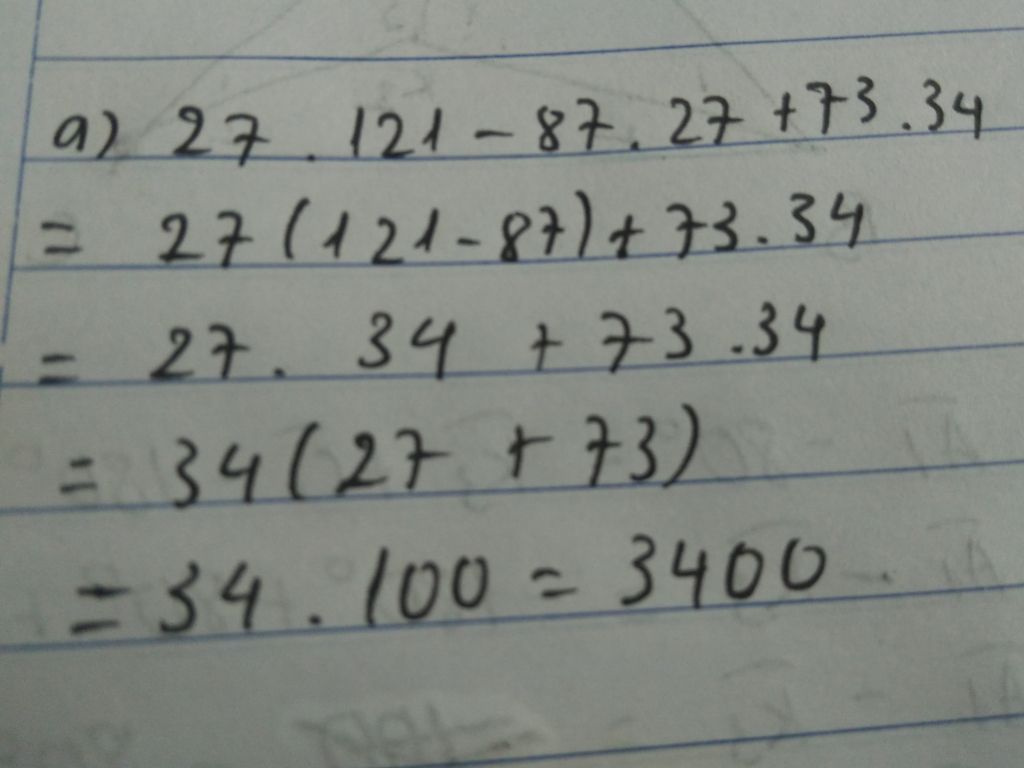 a) 27 . 121 - 87 . 27 + 73 . 34
= 27 (121 - 87) + 73 . 34
= 27 . 34 + 73 . 34
= 34 (27 + 73)
= 34 . 100 = 3400